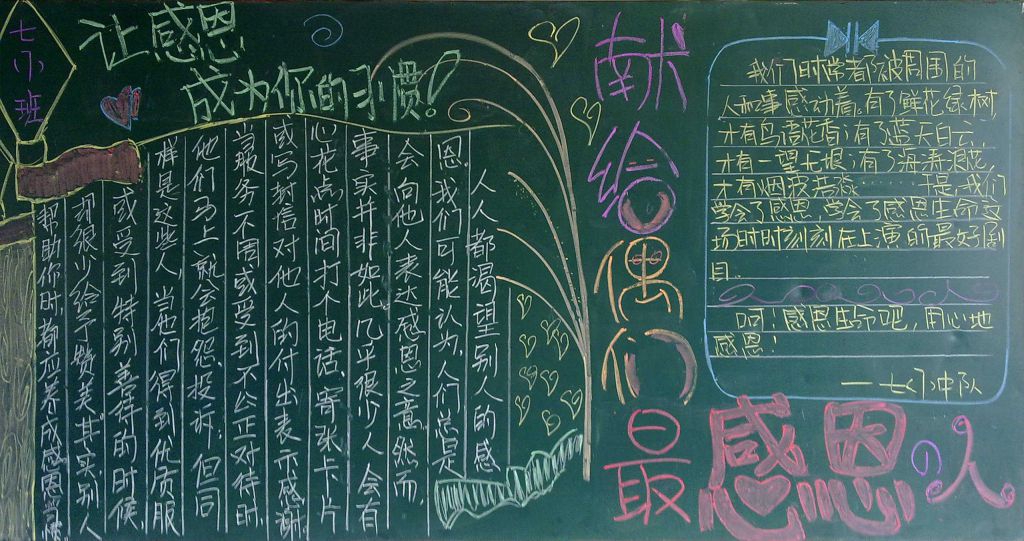 七
班
让感恩
成为你的习惯!
人人都渴望别人的感
恩,我们可能认为,人们总是
会向他人表达感恩之意。然而,
事实并非如此,几乎很少人会有
心花点时间打个电话、寄张卡片
或写封信对他人的付出表示感谢
当服务不周或受到不公正对待时,
他们马上就会抱怨、投诉;但同
样是这些人,当他们得到优质服
或受到特别善待的时候,
却很少给予赞美。其实,别人
帮助你时,都应养成感恩
献给偶们
最感恩の人
我们时常都被周围的
人和事感动着。有了鲜花绿树,
才有鸟语花香;有了蓝天白云,
才有一望无垠;有了海涛浪花,
才有烟波浩淼……于是,我们
学会了感恩,学会了感恩生命这
场时时刻刻在上演的最好剧
目。
呵!感恩生命吧,用心地
感恩!
中队